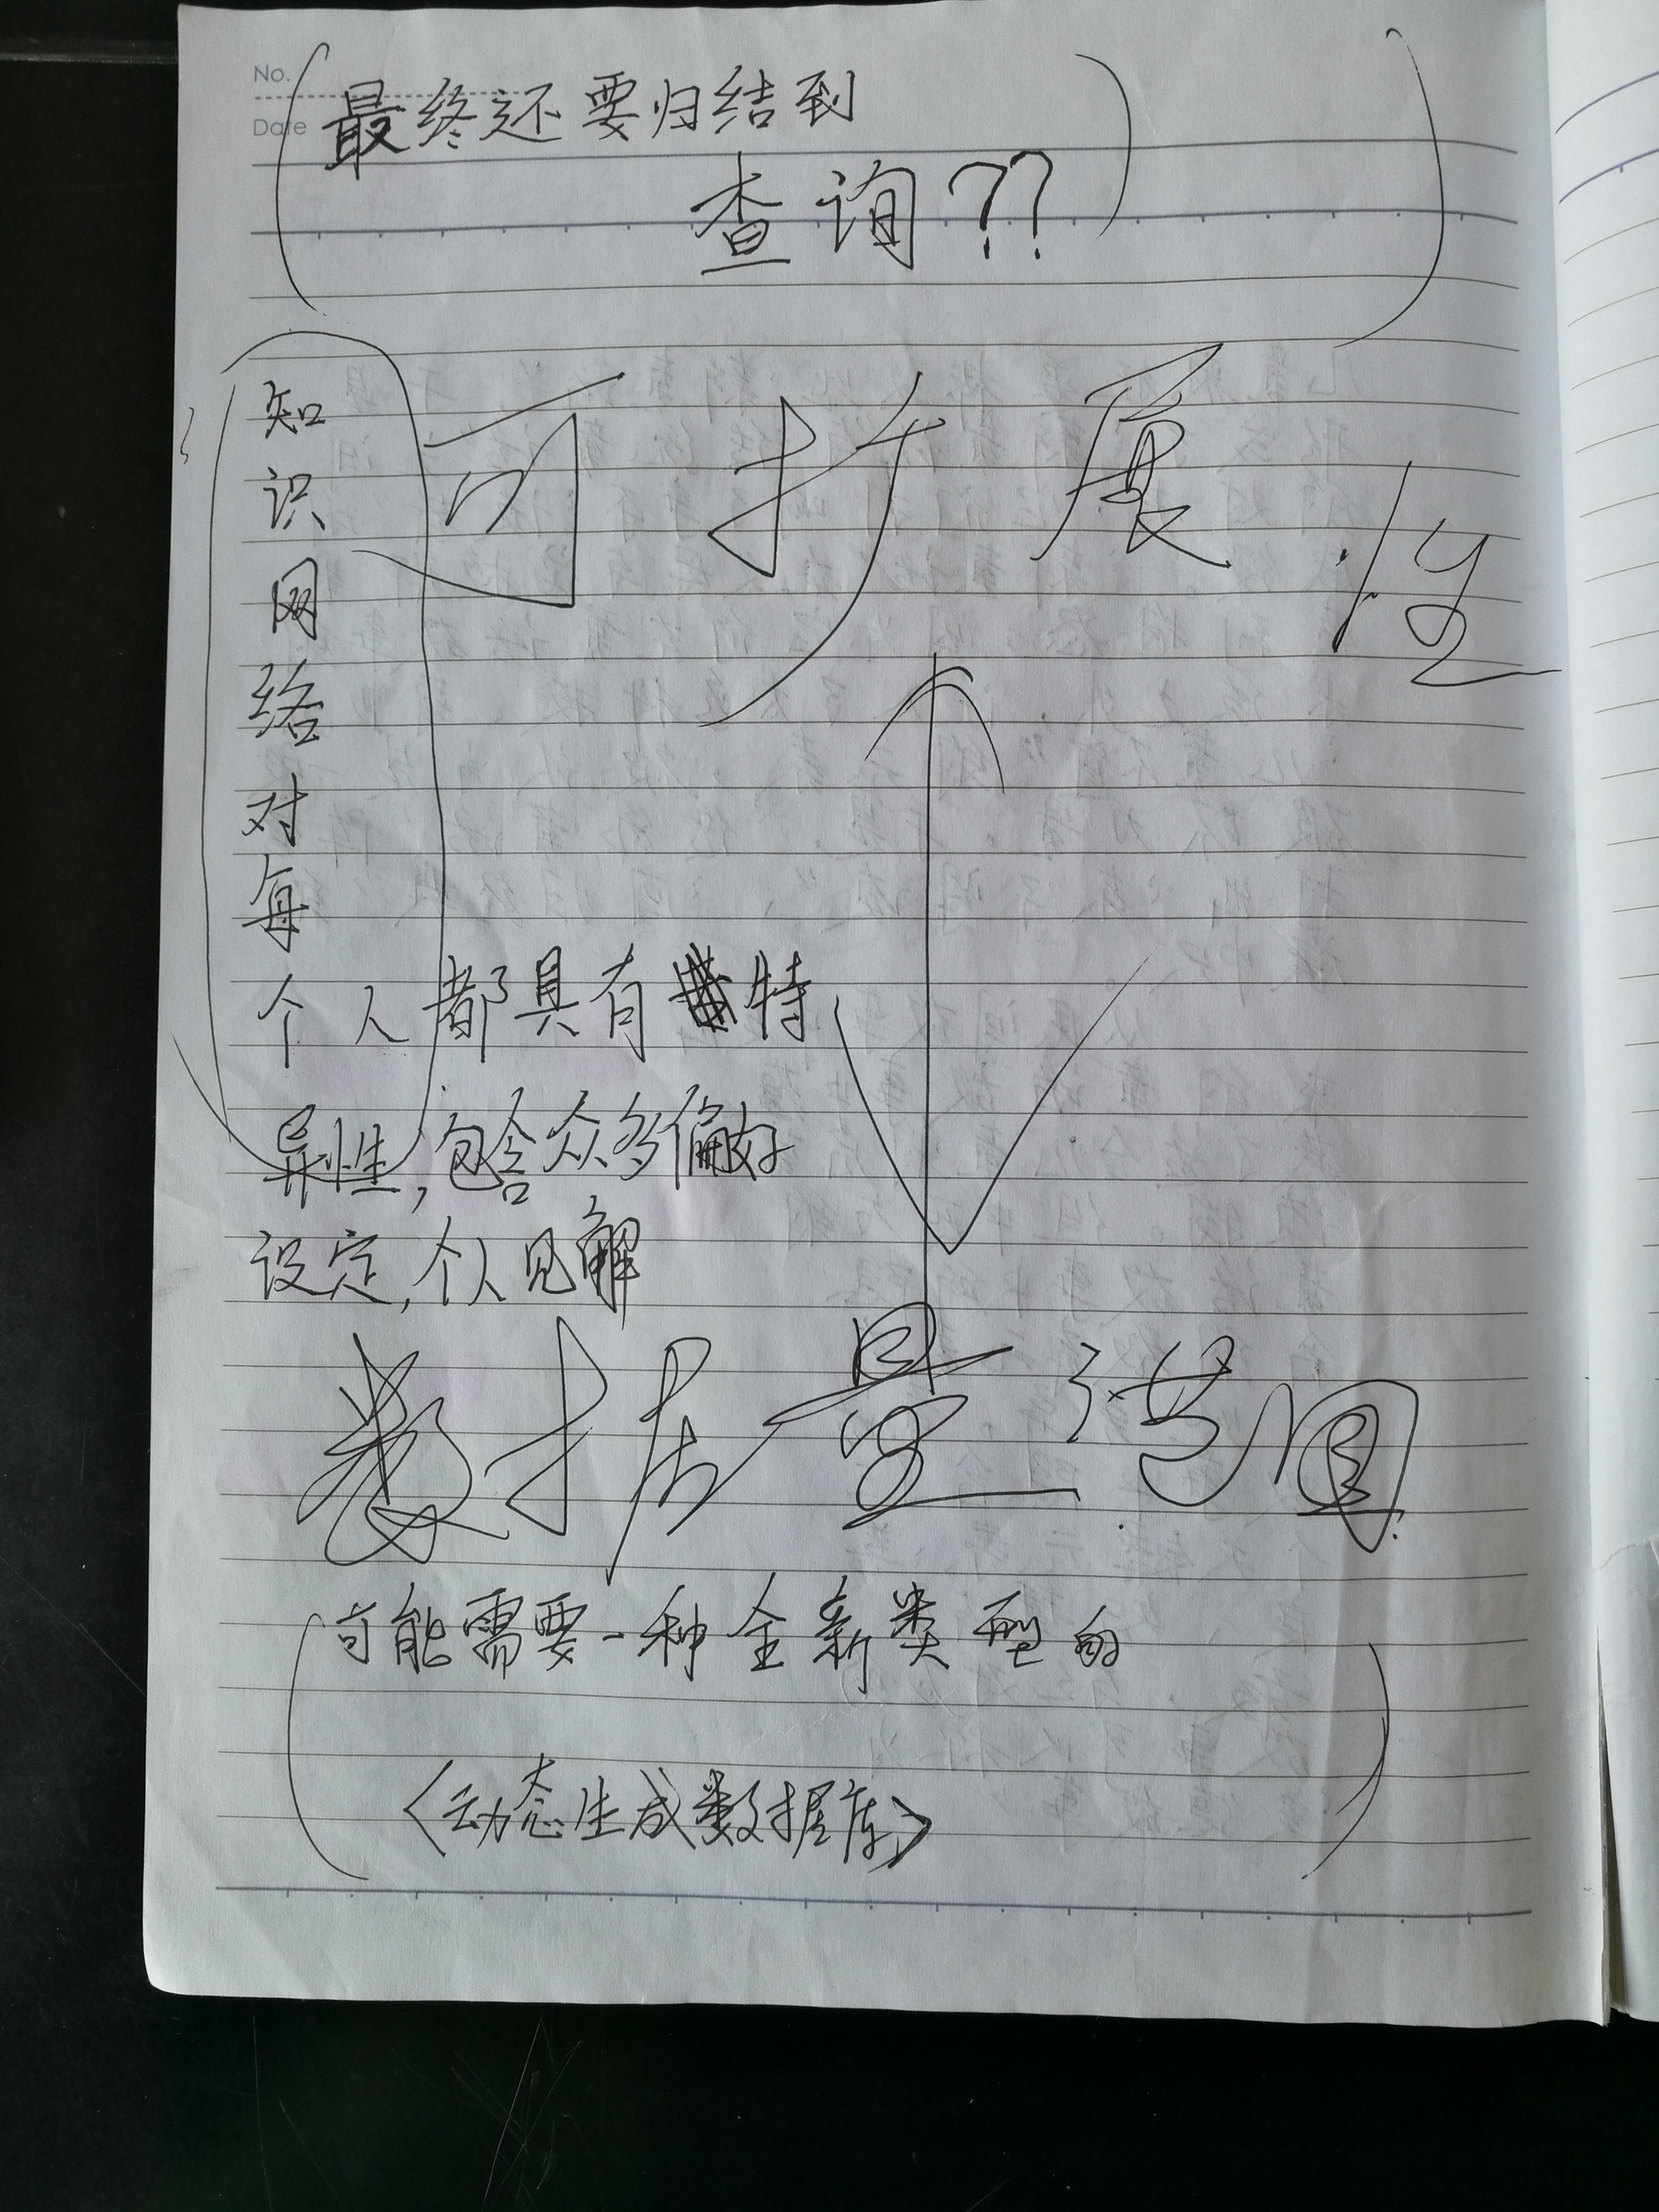 No.
Date
最终还要归结到
查询??
可扩展性
知
识
网
络
对
每
个人都具有特
异性,包含众多偏好
设定,个人见解
数据量范围
可能需要一种全新类型的
〈动态生成数据库〉